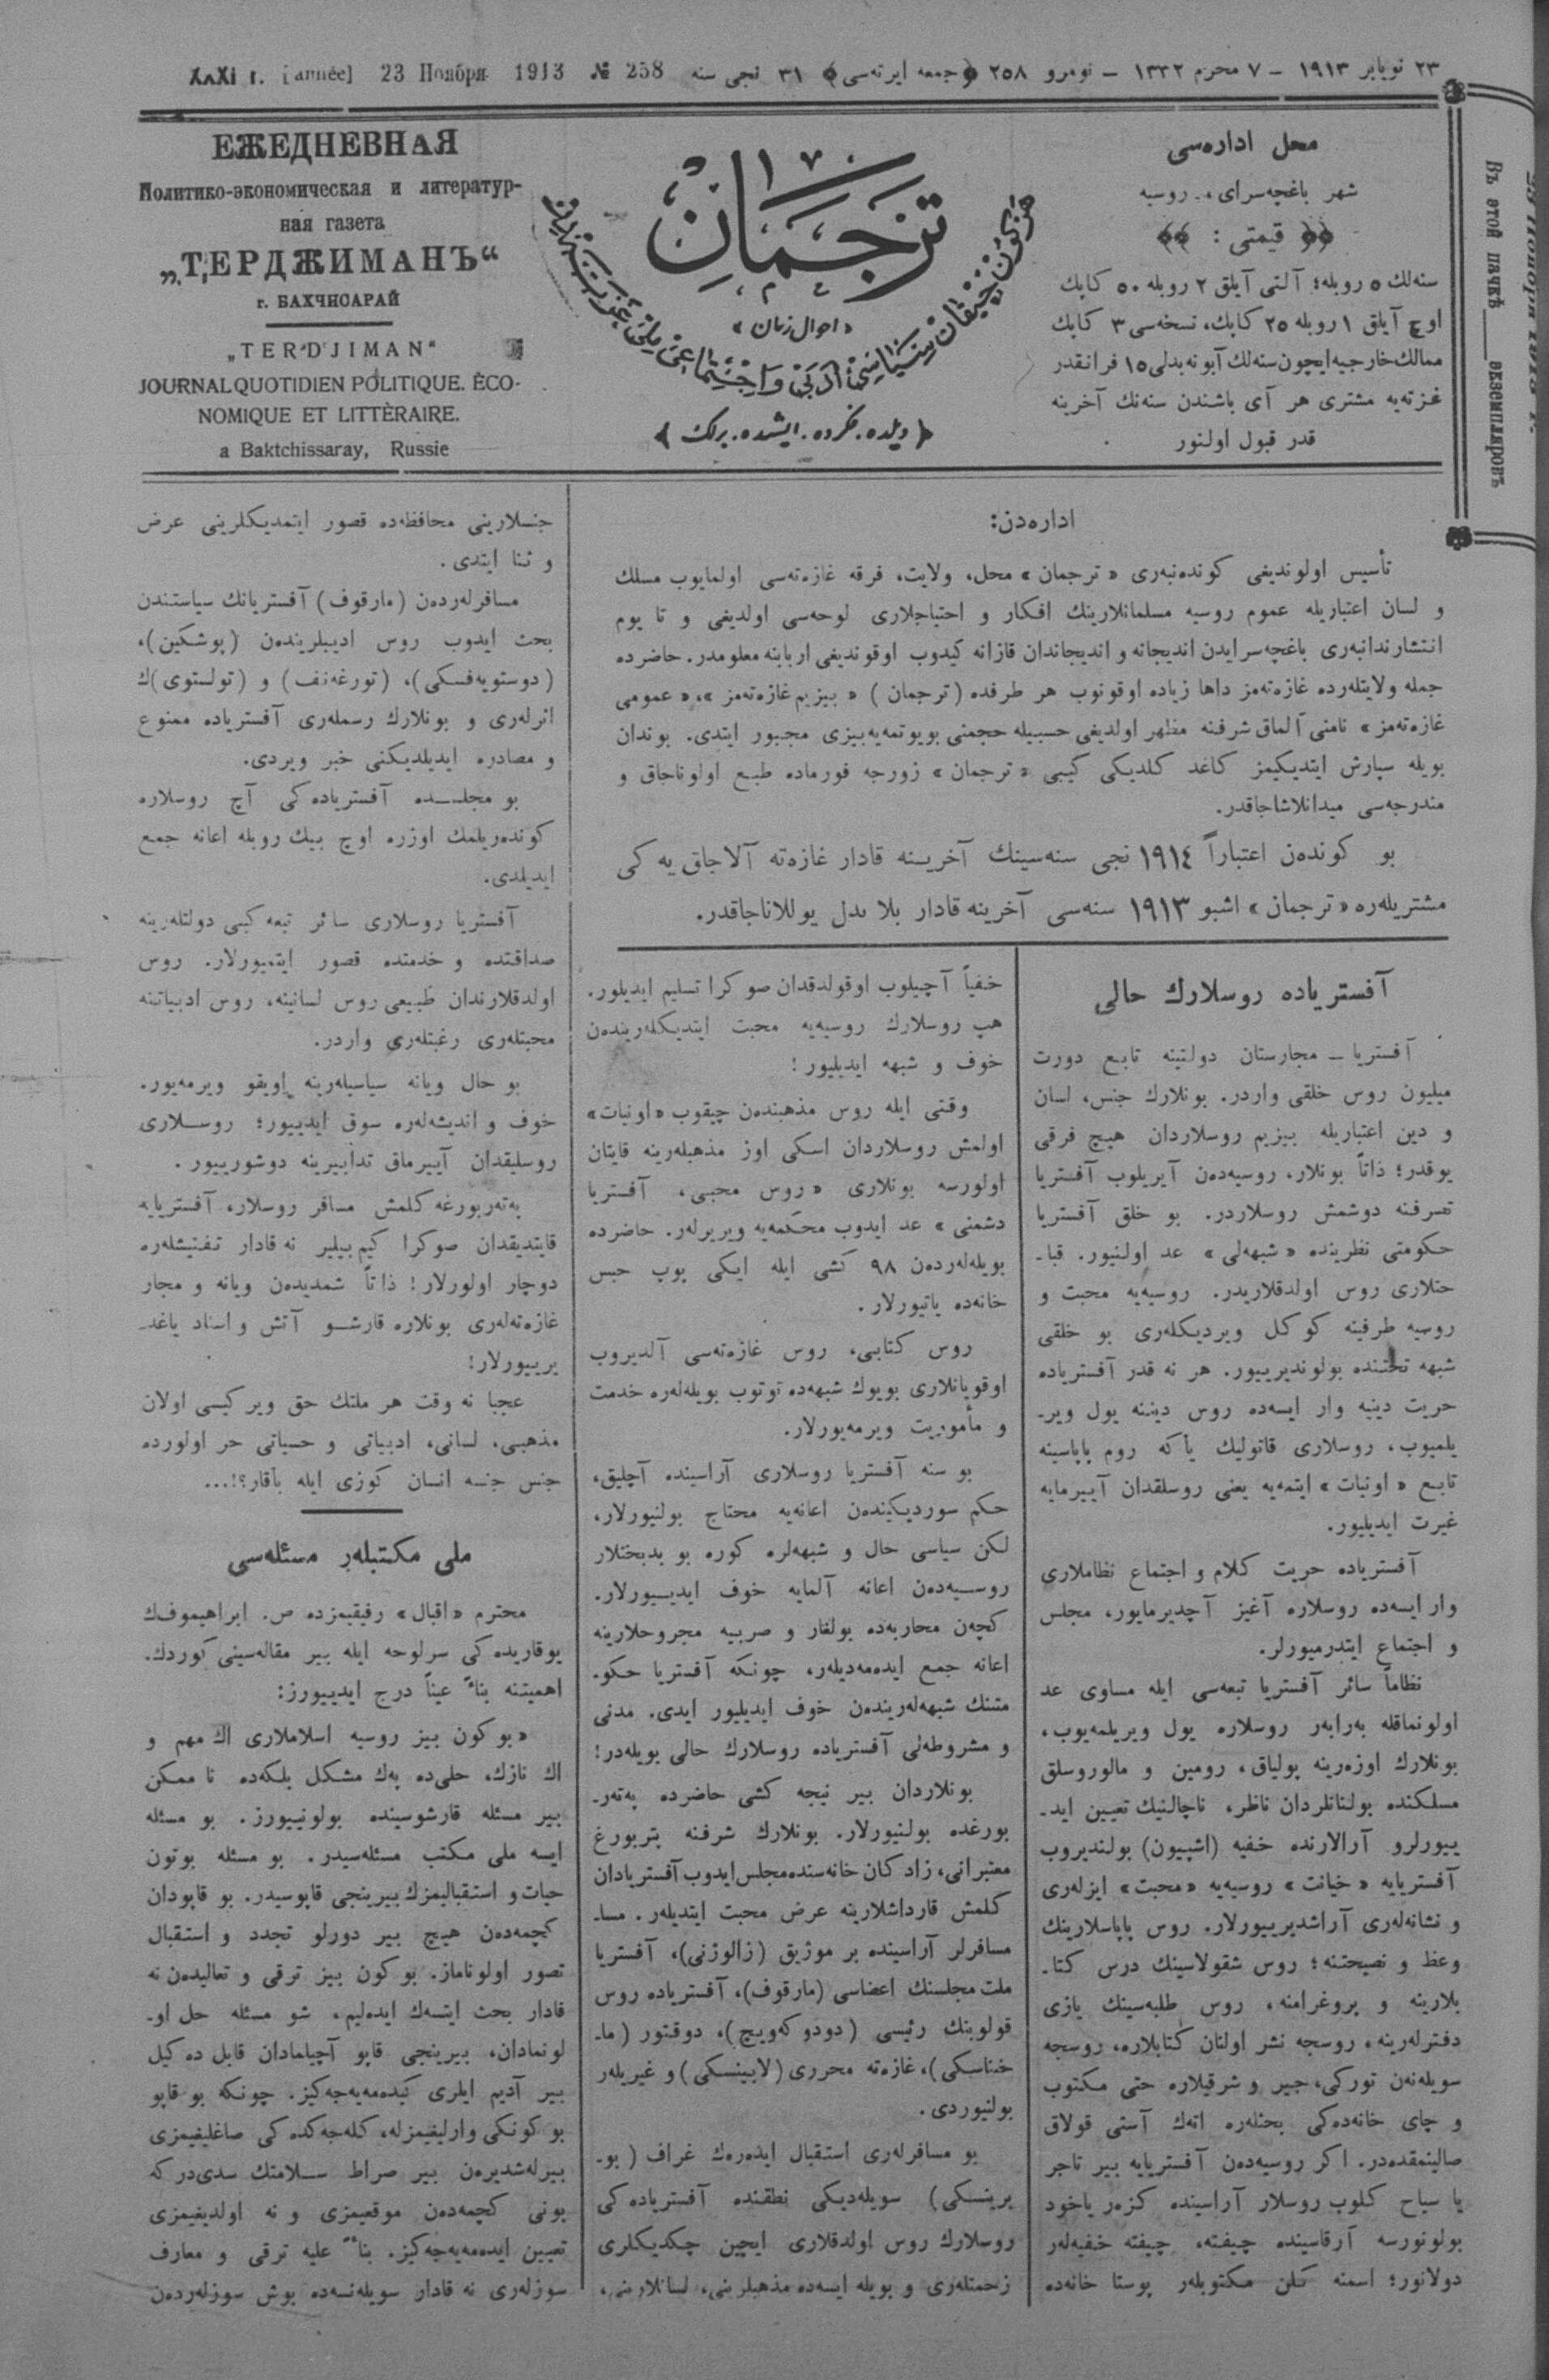 ٢٣ نویابر ١٩١٣ – ٧ محرم ١٣٣٢ – نومرو ٢٥٨ ﴿جمعه ایرته‌سی﴾ ٣١ نجی سنه № 258 1913 23 Ноября [année] XXXI г.
محل اداره‌سی
شهر باغچه‌سرای، روسیه
﴿﴿ قیمتی : ﴾﴾
سنه‌لك ٥ روبله؛ آلتی آیلق ٢ روبله ٥٠ كاپك
اوچ آیلق ١ روبله ٢٥ كاپك، نسخه‌سی ٣ كاپك
ممالك خارجیه ایچون سنه‌لك آبونه بدلی ١٥ فرانقدر
غزته‌یه مشتری هر آی باشندن سنه‌نك آخرینه
قدر قبول اولنور
ترجمان
« احوال زمان »
هر كون چیقان سیاسی، ادبی و اجتماعی ملی غزته
﴿ دیلده. فكرده. ایشده. برلك ﴾
ЕЖЕДНЕВНАЯ
Политико-экономическая и литератур-
ная газета
„ТЕРДЖИМАНЪ“
г. БАХЧИСАРАЙ
„TERDJIMAN“
JOURNAL QUOTIDIEN POLITIQUE. ÈCO-
NOMIQUE ET LITTÈRAIRE.
a Baktchissaray, Russie
Въ этой пачкѣ ___ экземпляровъ
اداره‌دن:
تأسیس اولوندیغی كوندەنبەری « ترجمان » محل، ولایت، فرقه غازەتەسی اولمایوب مسلك
و لسان اعتباریله عموم روسیه مسلمانلارینك افكار و احتیاجلاری لوحه‌سی اولدیغی و تا یوم
انتشارندانبەری باغچه‌سرایدن اندیجانه و اندیجاندان قازانه كیدوب اوقوندیغی اربابنه معلومدر. حاضرده
جمله ولایتلەرده غازەتەمز داها زیاده اوقونوب هر طرفده (ترجمان) « بیزیم غازەتەمز »، « عمومی
غازەتەمز » نامنی آلماق شرفنه مظهر اولدیغی حسبیله حجمنی بویوتمەیه بیزی مجبور ایتدی. بوندان
بویله سپارش ایتدیكیمز كاغد كلدیكی كیبی « ترجمان » زورجه فورماده طبع اولوناجاق و
مندرجه‌سی میدانلاشاجاقدر.
بو كوندەن اعتباراً ١٩١٤ نجی سنه‌سینك آخرینه قادار غازەته آلاجاق یه كی
مشتریلەره « ترجمان » اشبو ١٩١٣ سنه‌سی آخرینه قادار بلا بدل یوللاناجاقدر.
آفستریاده روسلارك حالی
آفستریا – مجارستان دولتینه تابع دورت
میلیون روس خلقی واردر. بونلارك جنس، لسان
و دین اعتباریله بیزیم روسلاردان هیچ فرقی
یوقدر؛ ذاتاً بونلار، روسیەدەن آیریلوب آفستریا
تصرفنه دوشمش روسلاردر. بو خلق آفستریا
حكومتی نظرینده « شبهەلی » عد اولنیور. قبا-
حتلاری روس اولدقلاریدر. روسیەیه محبت و
روسیه طرفینه كوكل ویردیكلەری بو خلقی
شبهه تحتنده بولوندیرییور. هر نه قدر آفستریاده
حریت دینیه وار ایسەده روس دیننه یول ویر-
یلمیوب، روسلاری قاتولیك یاكه روم پاپاسینه
تابع « اونیات » ایتمەیه یعنی روسلقدان آییرمایه
غیرت ایدیلیور.
آفستریاده حریت كلام و اجتماع نظاملاری
وار ایسەده روسلاره آغیز آچدیرمایور، مجلس
و اجتماع ایتدرمیورلر.
نظاماً سائر آفستریا تبعه‌سی ایله مساوی عد
اولونماقله بەرابەر روسلاره یول ویریلمەیوب،
بونلارك اوزەرینه پولیاق، رومین و مالوروسلق
مسلكنده بولنانلردان ناظر، ناچالنیك تعیین اید-
ییورلرو آرالارنده خفیه (اشپیون) بولندیروب
آفستریایه « خیانت » روسیەیه « محبت » ایزلەری
و نشانەلەری آراشدیرییورلار. روس پاپاسلارینك
وعظ و نصیحتنه؛ روس شقولاسینك درس كتا-
بلارینه و پروغرامنه، روس طلبەسینك یازی
دفترلەرینه، روسجه نشر اولنان كتابلاره، روسجه
سویلەنەن توركی، جیر و شرقیلاره حتی مكتوب
و چای خانەدەكی بحثلەره اتەك آستی قولاق
صالینمقدەدر. اكر روسیەدەن آفستریایه بیر تاجر
یا سیاح كلوب روسلار آراسینده كزەر یاخود
بولونورسه آرقاسینده چیفته، چیفته خفیەلەر
دولانور؛ اسمنه كلن مكتوبلەر پوستا خانەده
خفیاً آچیلوب اوقولدقدان صوكرا تسلیم ایدیلور.
هپ روسلارك روسیەیه محبت ایتدیكلەریندەن
خوف و شبهه ایدیلیور!
وقتی ایله روس مذهبندەن چیقوب « اونیات »
اولمش روسلاردان اسكی اوز مذهبلەرینه قایتان
اولورسه بونلاری « روس محبی، آفستریا
دشمنی » عد ایدوب محكمەیه ویریرلەر. حاضرده
بویلەلەردەن ٩٨ كشی ایله ایكی پوپ حبس
خانەده یاتیورلار.
روس كتابی، روس غازەتەسی آلدیروب
اوقویانلاری بویوك شبهەده توتوب بویلەلەره خدمت
و مأموریت ویرمەیورلار.
بو سنه آفستریا روسلاری آراسینده آچلیق،
حكم سوردیكیندەن اعانەیه محتاج بولنیورلار،
لكن سیاسی حال و شبهەلره كوره بو بدبختلار
روسیەدەن اعانه آلمایه خوف ایدییورلار.
كچەن محاربەده بولغار و صربیه مجروحلارینه
اعانه جمع ایدەمەدیلەر، چونكه آفستریا حكو-
متنك شبهەلەریندەن خوف ایدیلیور ایدی. مدنی
و مشروطەلی آفستریاده روسلارك حالی بویلەدر!
بونلاردان بیر نیجه كشی حاضرده پەتەر-
بورغده بولنیورلار. بونلارك شرفنه پتربورغ
معتبرانی، زادكان خانەسنده مجلس ایدوب آفستریادان
كلمش قارداشلارینه عرض محبت ایتدیلەر. مسا-
مسافرلر آراسینده بر موژیق (زالوزنی)، آفستریا
ملت مجلسنك اعضاسی (مارقوف)، آفستریاده روس
قولوبنك رئیسی (دودوكەویچ)، دوقتور (ما-
خناسكی)، غازەته محرری (لابینسكی) و غیریلەر
بولنیوردی.
بو مسافرلەری استقبال ایدەرەك غراف (بو-
برینسكی) سویلەدیكی نطقنده آفستریادەكی
روسلارك روس اولدقلاری ایچین چكدیكلری
زحمتلەری و بویله ایسەده مذهبلرینی، لسانلارینی،
جنسلارینی محافظەده قصور ایتمدیكلرینی عرض
و ثنا ایتدی.
مسافرلەردەن (مارقوف) آفستریانك سیاستندن
بحث ایدوب روس ادیبلریندەن (پوشكین)،
(دوستویەفسكی)، (تورغەنف) و (تولستوی)ك
اثرلەری و بونلارك رسملەری آفستریاده ممنوع
و مصادره ایدیلدیكنی خبر ویردی.
بو مجلسده آفستریادەكی آچ روسلاره
كوندەریلمك اوزره اوچ بیك روبله اعانه جمع
ایدیلدی.
آفستریا روسلاری سائر تبعه كبی دولتلەرینه
صداقتده و خدمتده قصور ایتمیورلار. روس
اولدقلارندان طبیعی روس لسانینه، روس ادبیاتنه
محبتلەری رغبتلەری واردر.
بو حال ویانه سیاسیلەرینه اویقو ویرمەیور.
خوف و اندیشەلەره سوق ایدییور؛ روسلاری
روسلیقدان آییرماق تدابیرینه دوشورییور.
پەتەربورغه كلمش مسافر روسلار، آفستریایه
قایتدیقدان صوكرا كیم بیلیر نه قادار تفتیشلەره
دوچار اولورلار! ذاتاً شمدیدەن ویانه و مجار
غازەتەلەری بونلاره قارشو آتش و اسناد یاغد-
یرییورلار!
عجبا نه وقت هر ملتك حق ویركیسی اولان
مذهبی، لسانی، ادبیاتی و حسیاتی حر اولورده
جنس جنسه انسان كوزی ایله باقار؟!...
ملی مكتبلەر مسئلەسی
محترم « اقبال » رفیقیمزده ص. ابراهیموفك
یوقاریدەكی سرلوحه ایله بیر مقالەسینی كوردك.
اهمیتنه بناءً عیناً درج ایدییورز:
« بو كون بیز روسیه اسلاملاری اك مهم و
اك نازك، حلیده پەك مشكل بلكەده نا ممكن
بیر مسئله قارشوسینده بولونییورز. بو مسئله
ایسه ملی مكتب مسئلەسیدر. بو مسئله بوتون
حیات و استقبالیمزك بیرینجی قاپوسیدر. بو قاپودان
كچمەدەن هیچ بیر دورلو تجدد و استقبال
تصور اولوناماز. بو كون بیز ترقی و تعالیدەن نه
قادار بحث ایتسەك ایدەلیم، شو مسئله حل او-
لونمادان، بیرینجی قاپو آچیلمادان قابل دەكیل
بیر آدیم ایلری كیدەمەیەجەكیز. چونكه بو قاپو
بو كونكی وارلیغیمزله، كلەجەكدەكی صاغلیغیمزی
بیرلەشدیرەن بیر صراط سلامتك سدیدر كه
بونی كچمەدەن موقعیمزی و نه اولدیغیمزی
تعیین ایدەمەیەجەكیز. بناءً علیه ترقی و معارف
سوزلەری نه قادار سویلەنسەده بوش سوزلەردەن